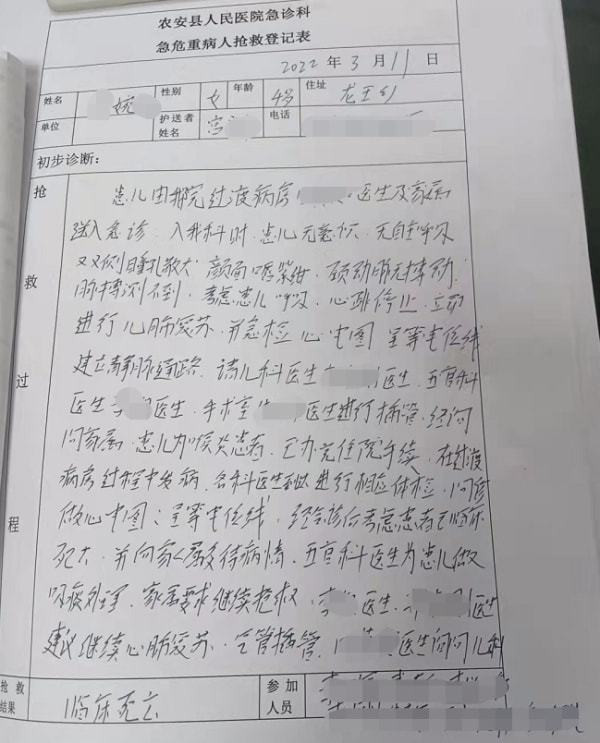 农安县人民医院急诊科
急危重病人抢救登记表
2022 年 3 月 11 日
姓名 婉 性别 女 年龄 4岁 住址 龙王乡
单位 护送者姓名 宫 电话
初步诊断：
抢救过程
患儿由我院过渡病房 医生及家属
送入急诊，入我科时，患儿无意识，无自主呼吸
双侧瞳孔散大，颜面唇紫绀，颈动脉无搏动，
脉搏测不到，考虑患儿呼吸，心跳停止，立即
进行心肺复苏，并急检心电图呈等电位线
建立静脉通路，请儿科医生 医生，五官科
医生 医生，手术室 医生进行插管，经询
问家属，患儿为喉炎患者，已办完住院手续，在过渡
病房过程中发病，各科医生 进行相应体检，同时
做心电图：呈等电位线，经会诊后考虑患者已临床
死亡，并向家属交待病情，五官科医生为患儿做
吸痰处理，家属要求继续抢救，李 医生、 医生
建议继续心肺复苏，气管插管， 医生询问儿科
抢救结果 临床死亡 参加人员